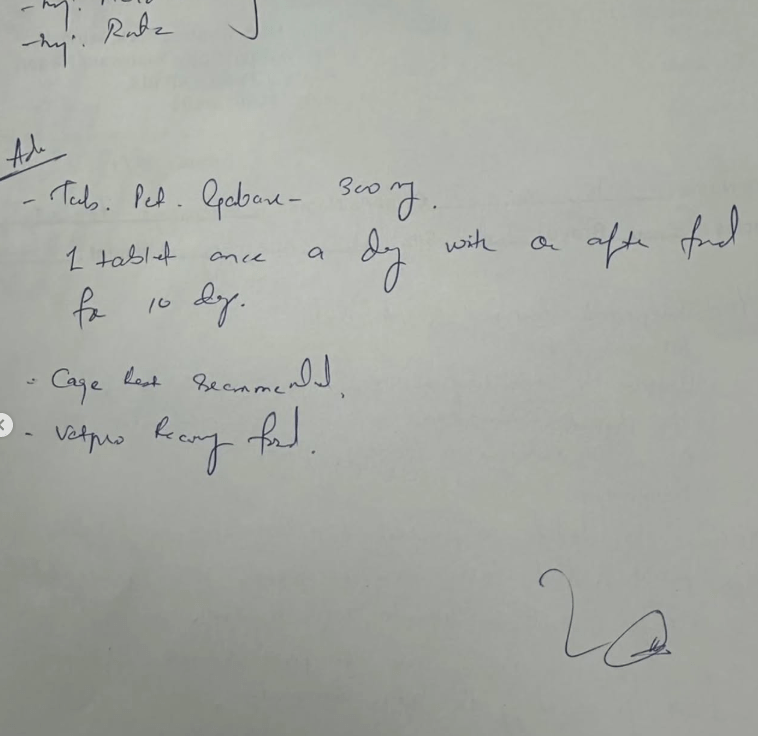 - Inj. Rntz
Adv
- Tab. Pet. Gabax - 300 mg.
1 tablet once a day with or after food
for 10 days.
- Cage Rest recommended.
- Vetpro Recovery food.